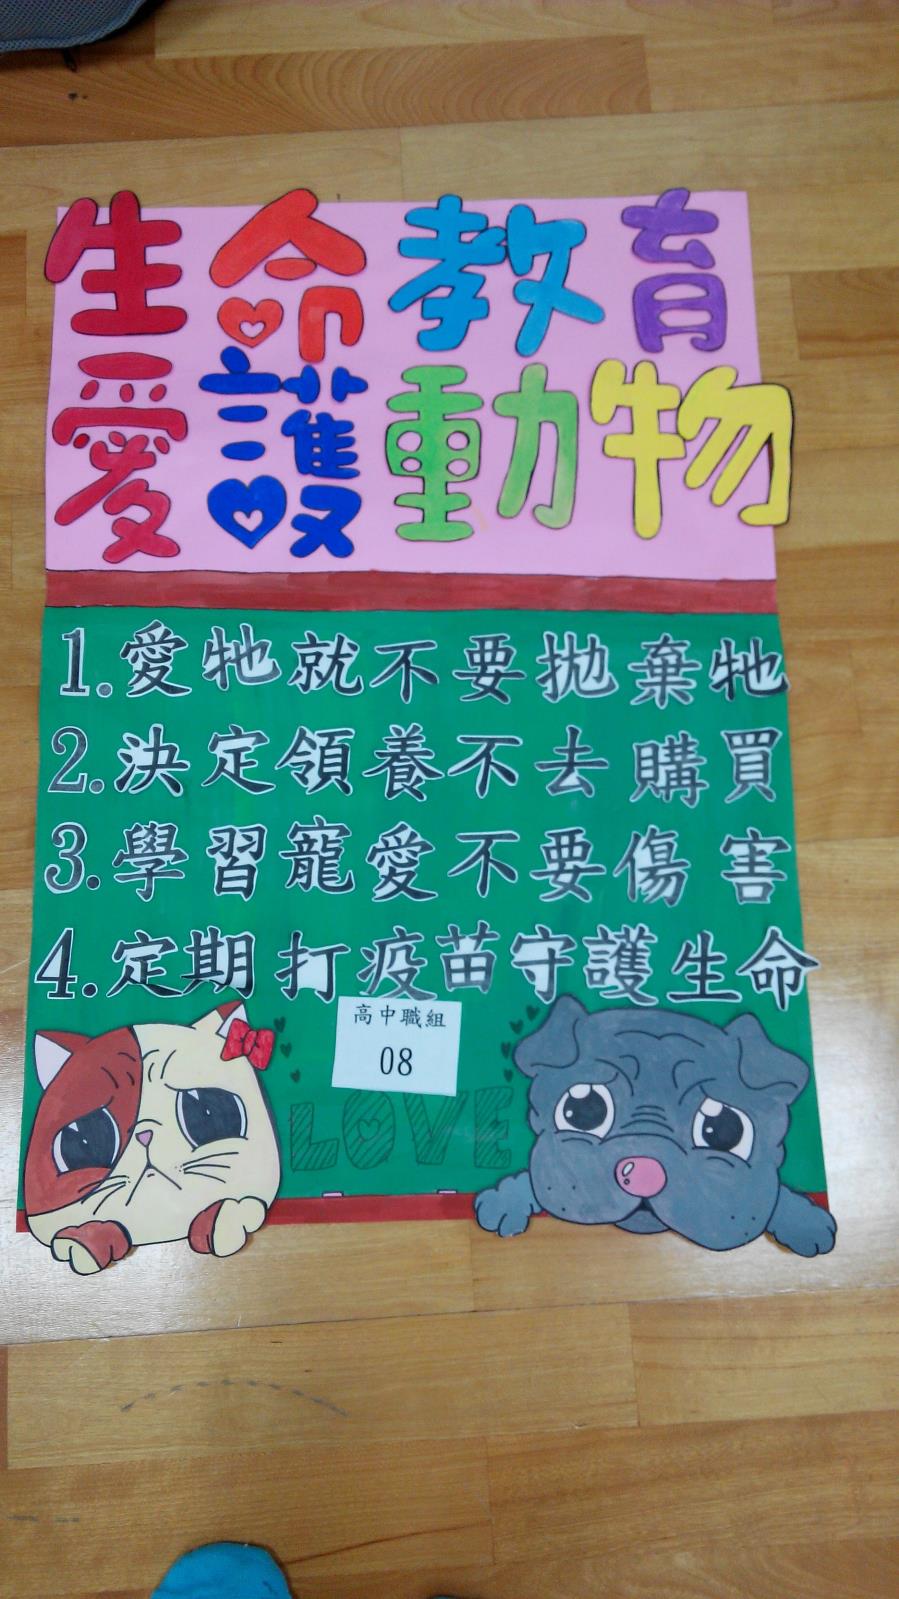 生命教育
愛護動物
1.愛牠就不要拋棄牠
2.決定領養不去購買
3.學習寵愛不要傷害
4.定期打疫苗守護生命
高中職組
08
LOVE